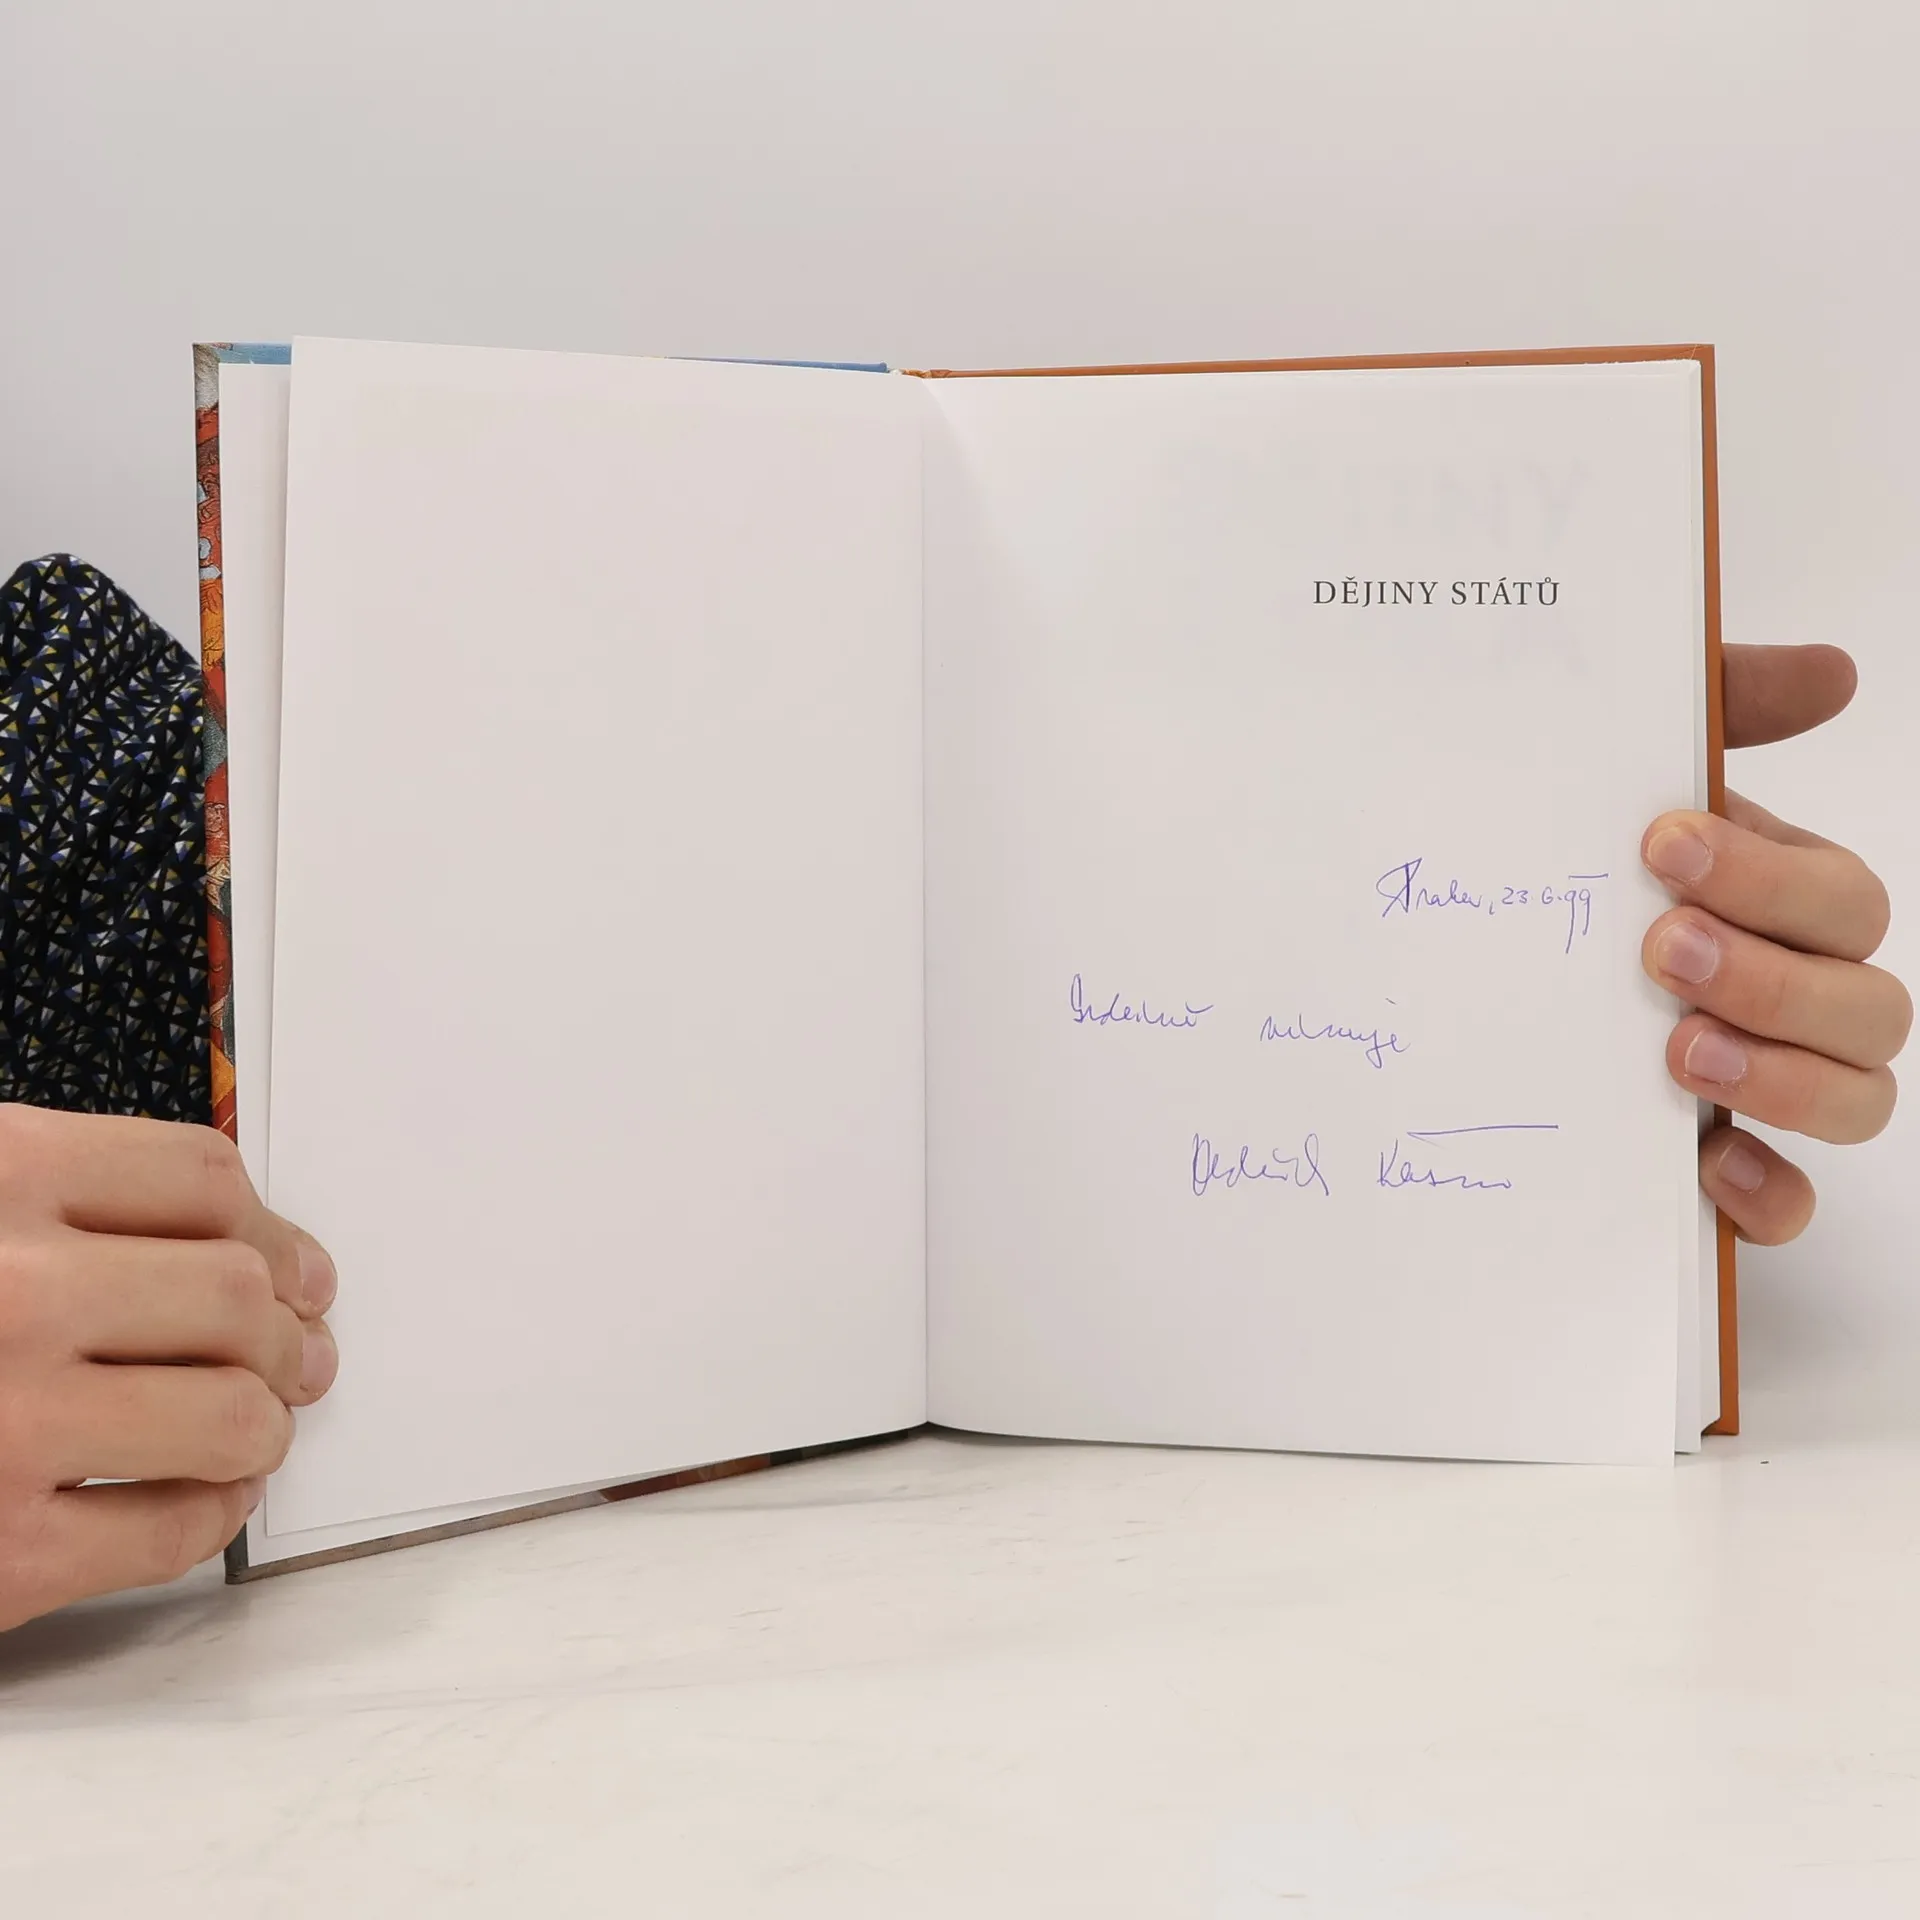 DĚJINY STÁTŮ
23.6.99
Srdečně věnuje
Oldřich Kašpar